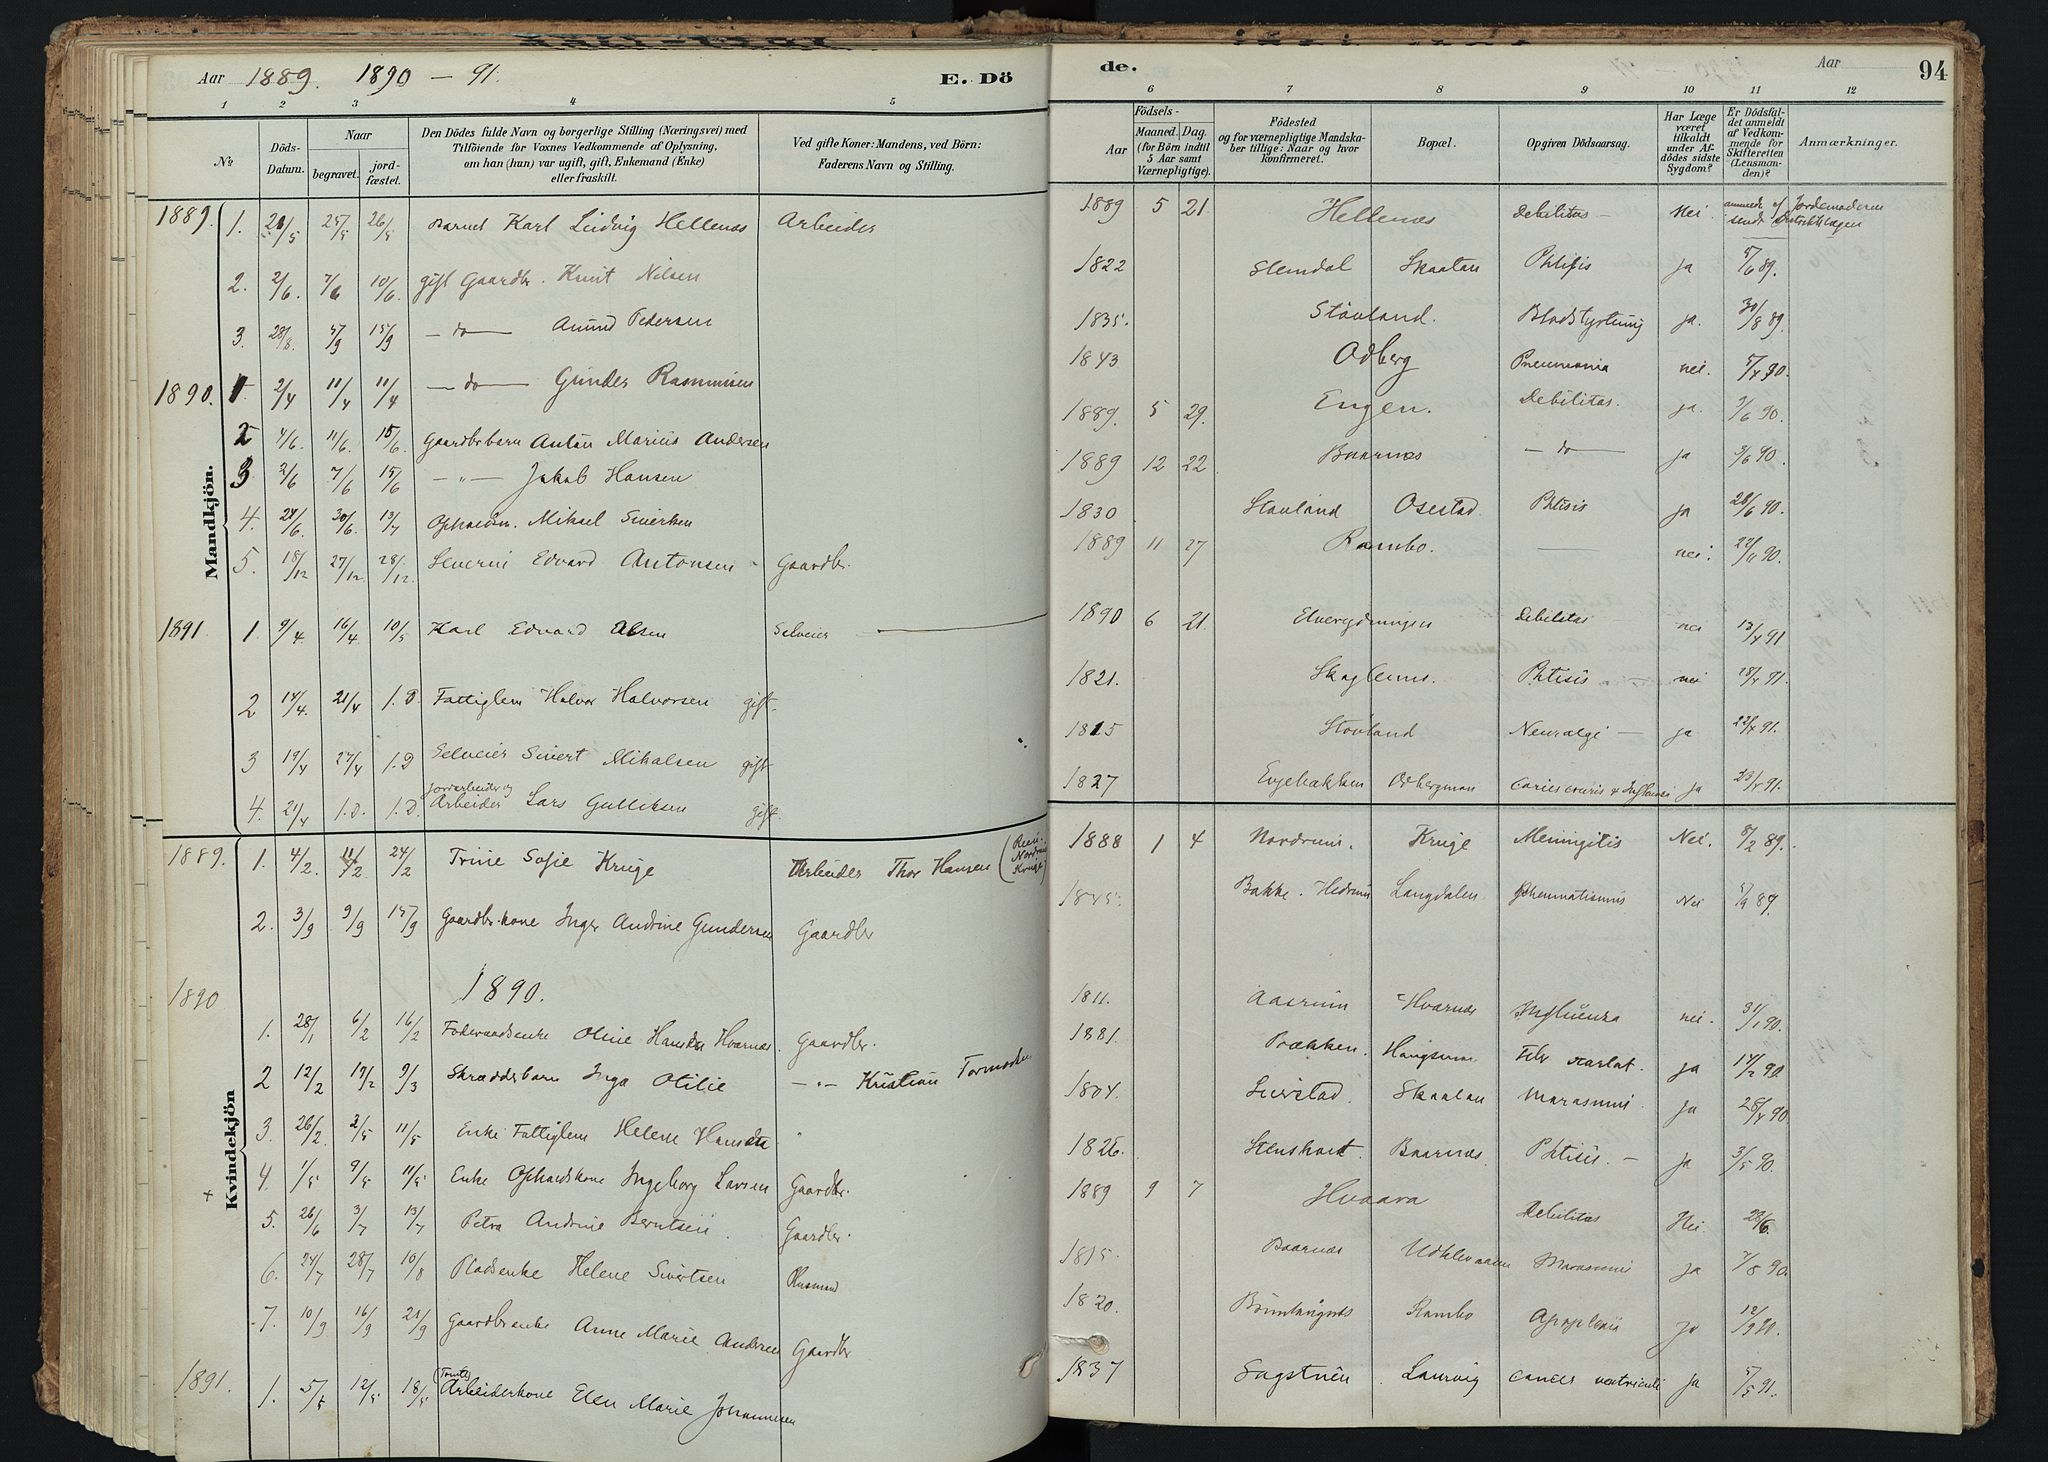 Aar 1889. 1890 - 91. E. Dö
1 2 3 4 5
№ Döds-Datum. Naar begravet. jord-fæstet. Den Dödes fulde Navn og borgerlige Stilling (Næringsvei) med Tilföiende for Voxnes Vedkommende af Oplysning, om han (hun) var ugift, gift, Enkemand (Enke) eller fraskilt. Ved gifte Koner: Mandens, ved Börn: Faderens Navn og Stilling.
1889. 1. 25/5 26/5 Barnet Karl Ludvig Hellenæs Arbeider
2. 2/6. 7/6 10/6. gift Gaardbr. Knut Nilsen
3. 28/8. 5/9 15/9 — do — Amund Pedersen
1890. 1 2/4 11/4 11/4 — do — Gunder Rasmussen
2 4/6. 11/6. 15/6. Gaardbrbarn Anton Marius Andersen
Mandkjön.
3 2/6 7/6 15/6 — " — Jakob Hansen
4. 24/6. 30/6. 13/7 Opholdsm. Mikael Siverksen
5. 18/12 27/12. 28/12. Severin Edvard Antonsen Gaardbr.
1891. 1. 9/4. 16/4. 10/5 Karl Edvard Olsen Selveier
2 14/4. 21/4 1.D. Fattiglem Halvor Halvorsen gift.
3 19/4 27/4 1.D Selveier Sivert Mikalsen gift
Jordarbeider og
4. 21/4 1.D. 1.D. Arbeider Lars Gulliksen gift.
1889. 1. 4/2. 11/2. 24/2 Trine Sofie Kruge Arbeider Thor Hansen
2. 3/9 9/9 15/9 Gaardbr.kone Inger Andrine Gundersen Gaardbr
1890 1890.
1. 28/1 6/2 16/2 Foderaadsenke Oline Hansdtr Hvarnes Gaardbr.
2 12/2 19/2 9/3 Skrædderbarn Inga Otilie — " — Kristian Tormodsen
Kvindekjön
3. 26/2. 2/5 11/5 Enke Fattiglem Helene Hansdtr "
4. 1/5 9/5 11/5 Enke Opholdskone Ingeborg Larsen Gaardbr.
+
5. 26/6 3/7 13/7 Petra Andrine Berntsen. Gaardbr.
6. 24/7 28/7 10/8 Pladsenke Helene Sivertsen Husmand
7. 10/9 16/9 21/9 Gaardbrenke Anne Marie Andersen Gaardbr
1891. 1. 5/5 12/5 18/5 Arbeiderkone Elen Marie Johannesen
de. Aar 94
6 7 8 9 10 11 12
Aar Födsels- Maaned. Dag. (for Börn indtil 5 Aar samt Værnepligtige). Födested og for værnepligtige Mandska-ber tillige: Naar og hvor konfirmeret. Bopæl. Opgiven Dödsaarsag. Har Læge været tilkaldt under Af-dödes sidste Sygdom? Er Dödsfal-det anmeldt af Vedkom-mende for Skifteretten (Lensman-den)? Anmærkninger.
1889 5 21. Hellenæs Debilitas — Nei. Jordemoderen
1822 Stendal Skaatan Phtisis ja 5/6 89.
1835. Stavland. Blodstyrtning ja. 30/8 89.
1843 Odberg Pneumonia nei. 5/4 90.
1889. 5 29. Engen. Debilitas. ja. 9/6 90.
1889 12 22 Baarnæs — do — ja 3/6 90.
1830 Stavland Osestad Phtisis ja 28/6 90.
1889 11 27 Rambo. — nei. 22/11 90.
1890 6 21. Debilitas nei 13/4 91
1821. Phtisis — nei 18/4 91.
1815 Stavland Neuralgi — ja 22/4 91.
1827 Odbergmoen ja 23/4 91.
1888 1 4 Nordrum. Kruge Meningitis Nei. 8/2 89.
1845. Bakke. Hedrum Langdalen Rheumatismus Nei 5/9 89.
1811. Aasrum Hvarnes Influenza nei. 31/1 90.
1881. Bakken. Haugsrum Febr scarlat. ja 17/2 90.
1804. Sierstad. Skaatan Marasmus. ja 28/4 90
1826. Stensholt. Baarnæs. Phtisis. — ja 3/5 90.
1889 9 7 Hvaara Debilitas Nei 28/6.
1815. Baarnæs Marasmus ja 7/8 90.
1820. Rambo Apoplexia ja 12/9 90.
1837 Laurvig Cancer ventriculi ja 5/5 91.